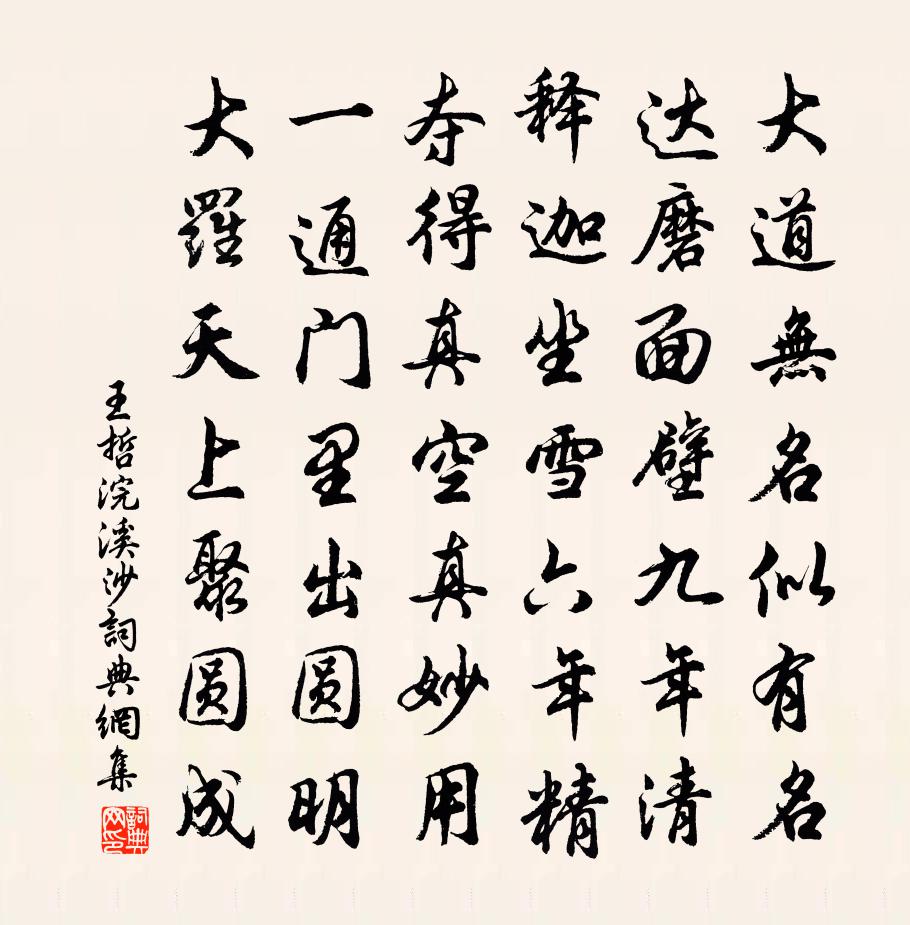 大道無名似有名
达磨面壁九年清
释迦坐雪六年精
夺得真空真妙用
一通门里出圆明
大羅天上聚圆成
王哲浣溪沙詞典網集
詞典
网印